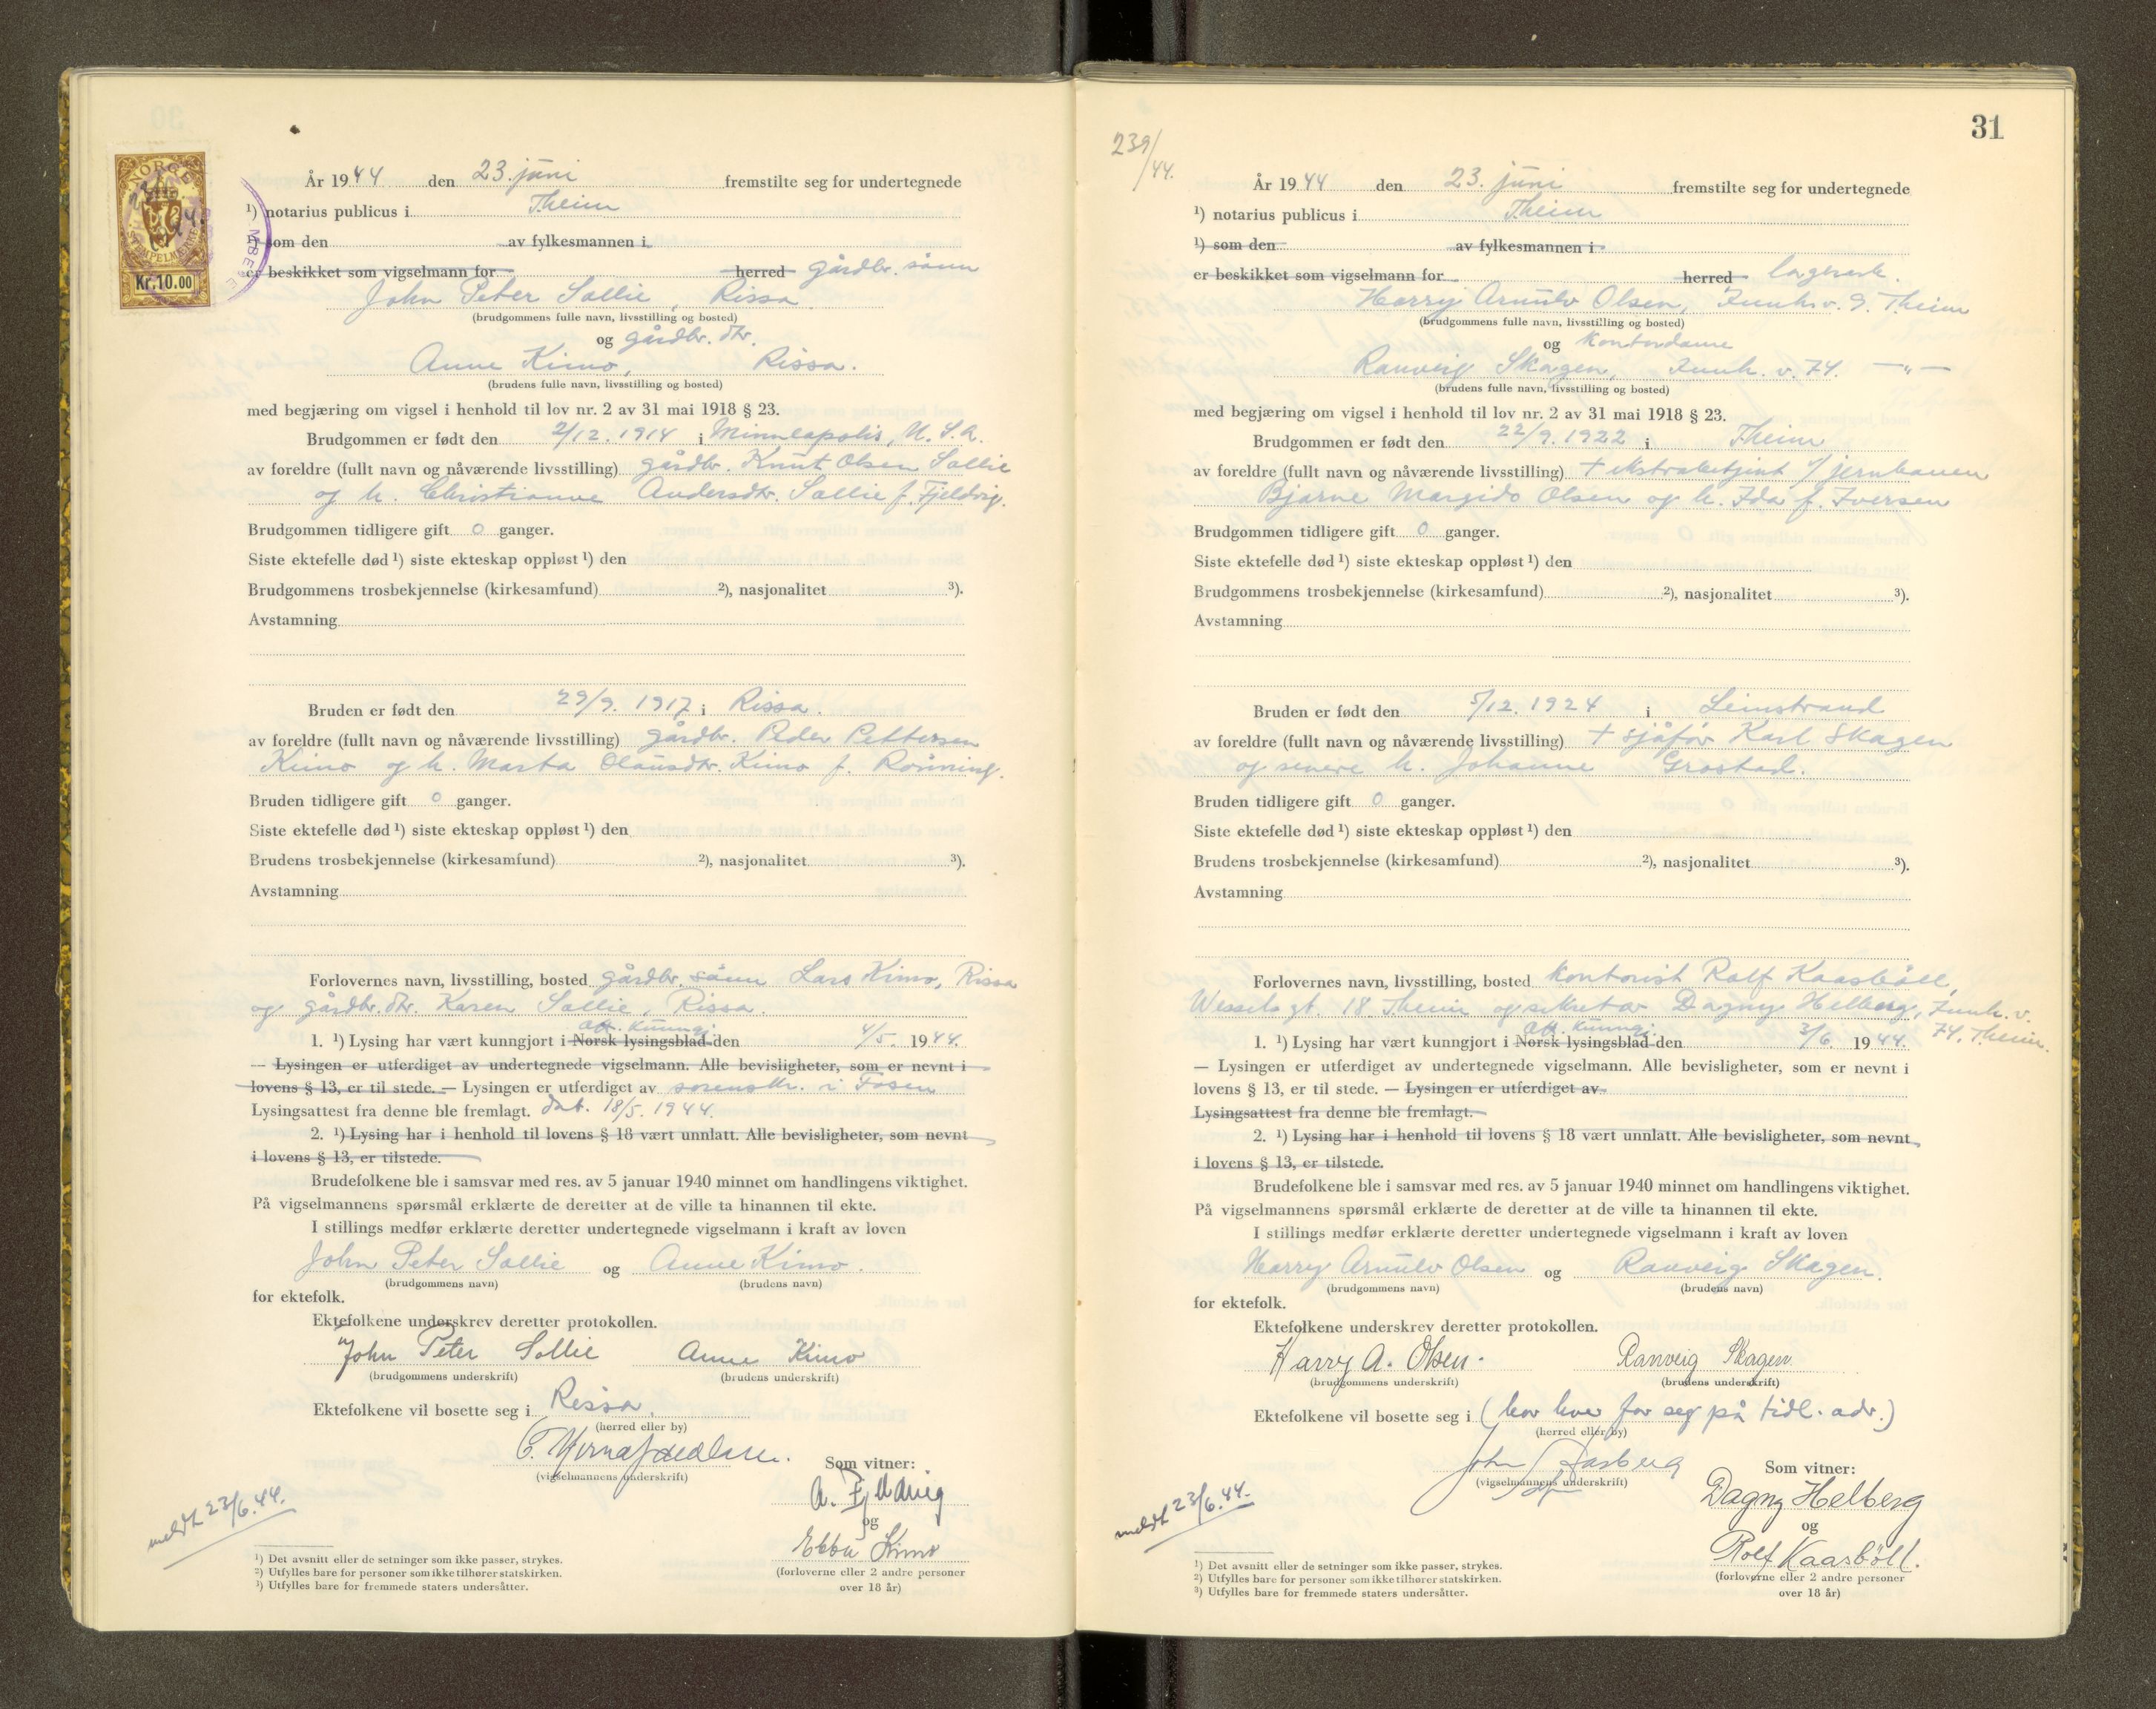 NORGE
STEMPELMERKE
Kr.10.00
År 1944 den 23. juni fremstilte seg for undertegnede
¹) notarius publicus i Theim
¹) som den av fylkesmannen i
er beskikket som vigselmann for herred gårdbr. sønn
John Peter Sollie, Rissa
(brudgommens fulle navn, livsstilling og bosted)
og gårdbr. dtr.
Anne Kimo, Rissa.
(brudens fulle navn, livsstilling og bosted)
med begjæring om vigsel i henhold til lov nr. 2 av 31 mai 1918 § 23.
Brudgommen er født den 2/12. 1914 i Minneapolis, U.S.A.
av foreldre (fullt navn og nåværende livsstilling) gårdbr. Knut Olsen Sollie
og h. Christianne Andersdtr. Sollie f. Fjeldvig.
Brudgommen tidligere gift 0 ganger.
Siste ektefelle død ¹) siste ekteskap oppløst ¹) den
Brudgommens trosbekjennelse (kirkesamfund) ²), nasjonalitet ³).
Avstamning
Bruden er født den 29/9. 1917 i Rissa.
av foreldre (fullt navn og nåværende livsstilling) gårdbr. Peder Pettersen
Kimo og h. Marta Olausdtr. Kimo f. Rönning.
Bruden tidligere gift 0 ganger.
Siste ektefelle død ¹) siste ekteskap oppløst ¹) den
Brudens trosbekjennelse (kirkesamfund) ²), nasjonalitet ³).
Avstamning
Forlovernes navn, livsstilling, bosted gårdbr. sønn Lars Kimo, Rissa
og gårdbr. dtr. Karen Sollie, Rissa.
off. kunngj.
1. ¹) Lysing har vært kunngjort i Norsk lysingsblad den 4/5. 1944.
— Lysingen er utferdiget av undertegnede vigselmann. Alle bevisligheter, som er nevnt i
lovens § 13, er til stede. — Lysingen er utferdiget av sorenskr. i Fosen
Lysingsattest fra denne ble fremlagt. dat. 18/5. 1944.
2. ¹) Lysing har i henhold til lovens § 18 vært unnlatt. Alle bevisligheter, som nevnt
i lovens § 13, er tilstede.
Brudefolkene ble i samsvar med res. av 5 januar 1940 minnet om handlingens viktighet.
På vigselmannens spørsmål erklærte de deretter at de ville ta hinannen til ekte.
I stillings medfør erklærte deretter undertegnede vigselmann i kraft av loven
John Peter Sollie og Anne Kimo.
(brudgommens navn) (brudens navn)
for ektefolk.
Ektefolkene underskrev deretter protokollen.
John Peter Sollie Anne Kimo
(brudgommens underskrift) (brudens underskrift)
Ektefolkene vil bosette seg i Rissa.
(herred eller by)
(vigselmannens underskrift)
Som vitner:
A. Fjeldvig
og
Ebba Kimo
(forloverne eller 2 andre personer
over 18 år)
meldt 23/6.44.
¹) Det avsnitt eller de setninger som ikke passer, strykes.
²) Utfylles bare for personer som ikke tilhører statskirken.
³) Utfylles bare for fremmede staters undersåtter.
31
239/44.
År 1944 den 23. juni fremstilte seg for undertegnede
¹) notarius publicus i Theim
¹) som den av fylkesmannen i
er beskikket som vigselmann for herred lagerarb.
Harry Arnulv Olsen, Innh. v. 9. Theim
(brudgommens fulle navn, livsstilling og bosted)
og kontordame
Ranveig Skagen, Innh. v. 74. —"—
(brudens fulle navn, livsstilling og bosted)
med begjæring om vigsel i henhold til lov nr. 2 av 31 mai 1918 § 23.
Brudgommen er født den 22/9. 1922 i Theim
av foreldre (fullt navn og nåværende livsstilling) + ekstrabetjent v/ jernbanen
Bjarne Margido Olsen og h. Ida f. Iversen
Brudgommen tidligere gift 0 ganger.
Siste ektefelle død ¹) siste ekteskap oppløst ¹) den
Brudgommens trosbekjennelse (kirkesamfund) ²), nasjonalitet ³).
Avstamning
Bruden er født den 5/12. 1924 i Leinstrand
av foreldre (fullt navn og nåværende livsstilling) + sjåfør Karl Skagen
og senere h. Johanne Grostad.
Bruden tidligere gift 0 ganger.
Siste ektefelle død ¹) siste ekteskap oppløst ¹) den
Brudens trosbekjennelse (kirkesamfund) ²), nasjonalitet ³).
Avstamning
Forlovernes navn, livsstilling, bosted kontorist Rolf Kaasböll,
Wessels gt. 18 Theim og sekretær Dagny Helberg, Innh. v.
74. Theim.
off. kunngj.
1. ¹) Lysing har vært kunngjort i Norsk lysingsblad den 3/6. 1944.
— Lysingen er utferdiget av undertegnede vigselmann. Alle bevisligheter, som er nevnt i
lovens § 13, er til stede. — Lysingen er utferdiget av
Lysingsattest fra denne ble fremlagt.
2. ¹) Lysing har i henhold til lovens § 18 vært unnlatt. Alle bevisligheter, som nevnt
i lovens § 13, er tilstede.
Brudefolkene ble i samsvar med res. av 5 januar 1940 minnet om handlingens viktighet.
På vigselmannens spørsmål erklærte de deretter at de ville ta hinannen til ekte.
I stillings medfør erklærte deretter undertegnede vigselmann i kraft av loven
Harry Arnulv Olsen og Ranveig Skagen.
(brudgommens navn) (brudens navn)
for ektefolk.
Ektefolkene underskrev deretter protokollen.
Harry A. Olsen. Ranveig Skagen
(brudgommens underskrift) (brudens underskrift)
Ektefolkene vil bosette seg i (bor hver for seg på tidl. adr.)
(herred eller by)
John Aasberg
(vigselmannens underskrift)
Som vitner:
Dagny Helberg
og
Rolf Kaasböll.
(forloverne eller 2 andre personer
over 18 år)
meldt 23/6.44.
¹) Det avsnitt eller de setninger som ikke passer, strykes.
²) Utfylles bare for personer som ikke tilhører statskirken.
³) Utfylles bare for fremmede staters undersåtter.